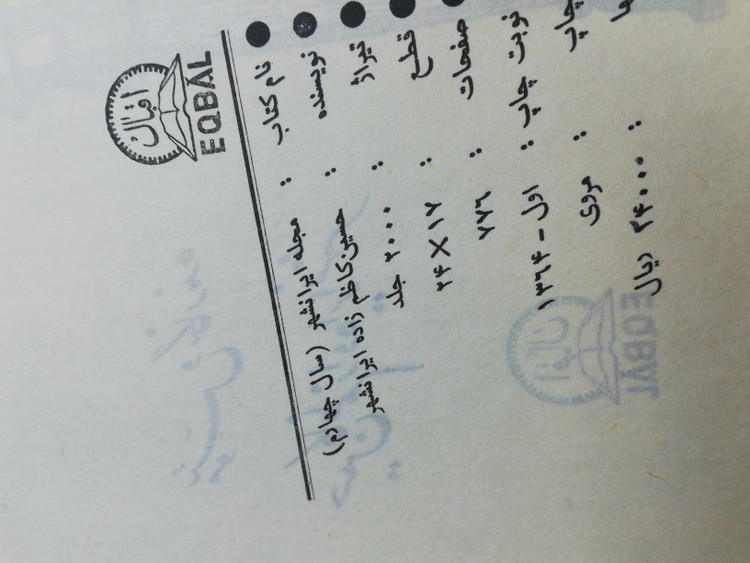 اقبال
EQBAL
نام کتاب : مجله ایرانشهر (سال چهارم)
نویسنده : حسین کاظم زاده ایرانشهر
تیراژ : ۲۰۰۰ جلد
قطع : ۱۷ × ۲۴
صفحات : ۷۷۶
نوبت چاپ : اول - ۱۳۶۴
چاپ : مروی
ها : ۲۴۰۰۰ ریال